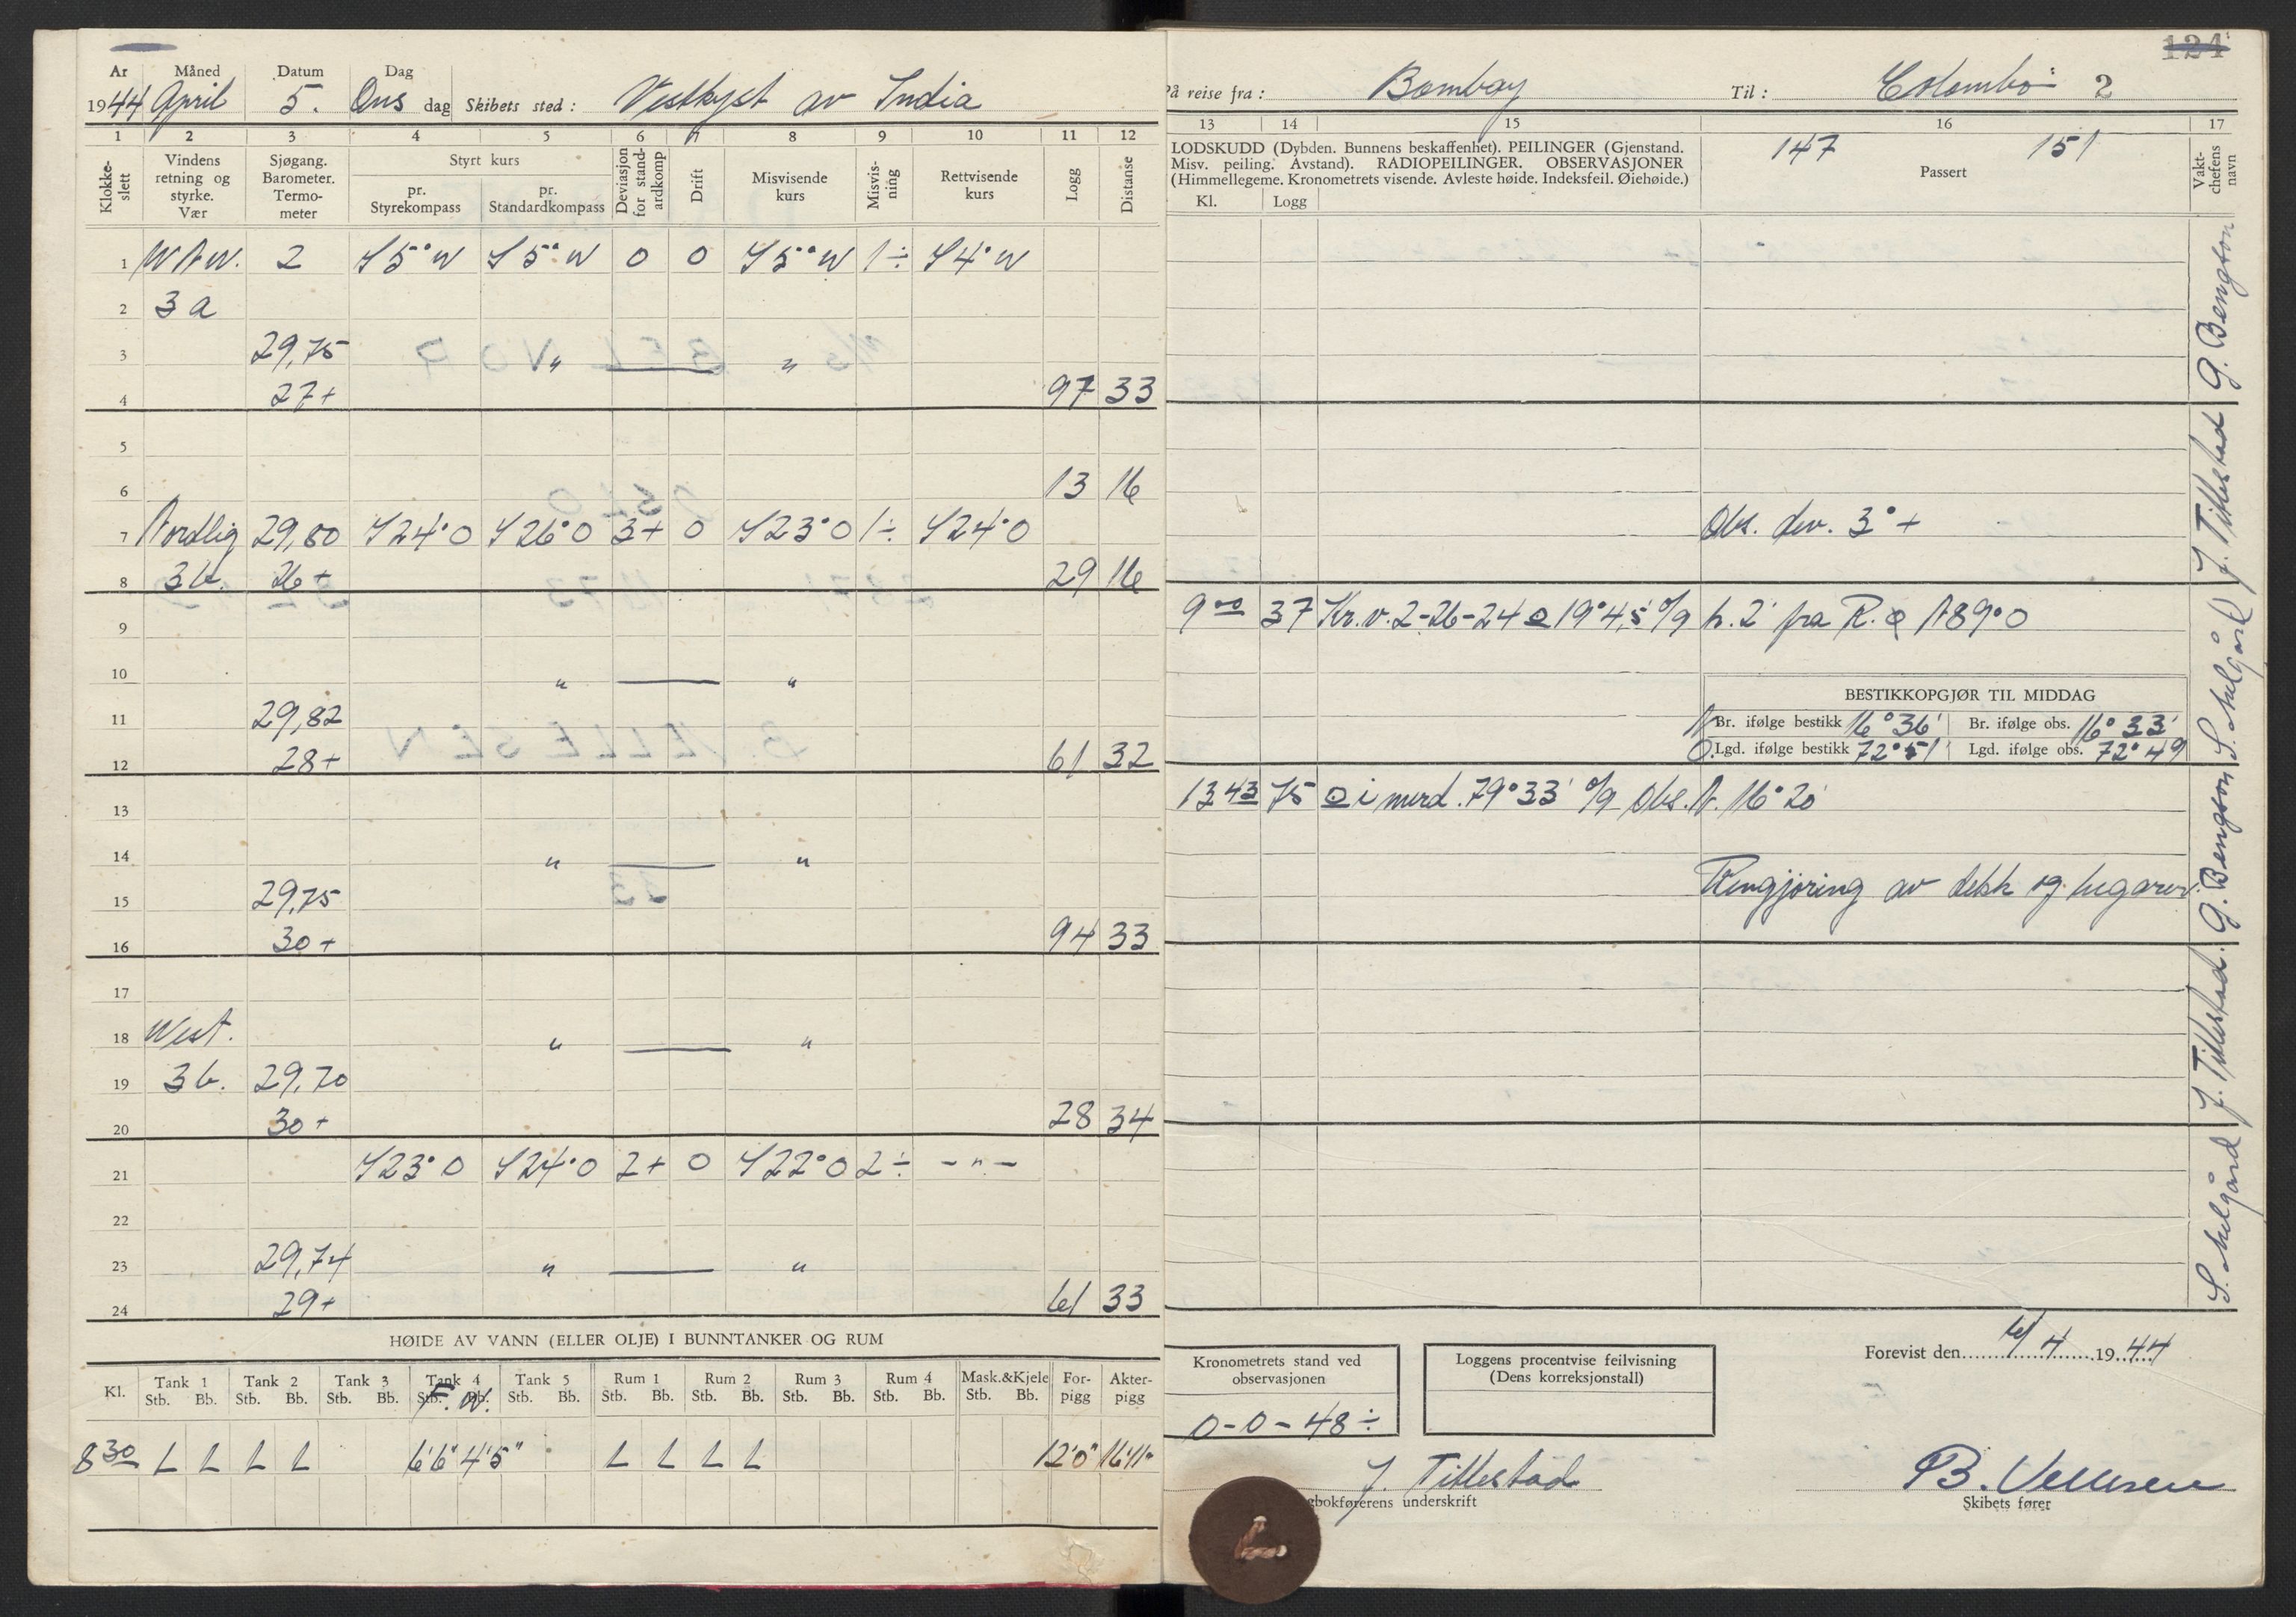 Ar Måned Datum Dag
1944 April 5. Ons dag Skibets sted: Vestkyst av India
1 2 3 4 5 6 7 8 9 10 11 12
Klokke-slett
Vindens retning og styrke. Vær
Sjøgang. Barometer. Termo-meter
Styrt kurs
pr. Styrekompass
pr. Standardkompass
Deviasjon for stand-ardkomp
Drift
Misvisende kurs
Misvis-ning
Rettvisende kurs
Logg
Distanse
1 WNW. 2 S5°W S5°W 0 0 S5°W 1÷ S4°W
2 3 a
3 29,75 " — "
4 27+ 97 33
5
6 13 16
7 Nordlig 29,80 S24°O S26°O 3+ 0 S23°O 1÷ S24°O
8 3 b. 26+ 29 16
9
10 " — "
11 29,82
12 28+ 61 32
13
14 " — "
15 29,75
16 30+ 94 33
17
18 West. " — "
19 3 b. 29,70
20 30+ 28 34
21 S23°O S24°O 2+ 0 S22°O 2÷ -"-
22
23 29,74 " — "
24 29+ 61 33
HØIDE AV VANN (ELLER OLJE) I BUNNTANKER OG RUM
Kl. Tank 1 Tank 2 Tank 3 Tank 4 Tank 5 Rum 1 Rum 2 Rum 3 Rum 4 Mask.&Kjele For-pigg Akter-pigg
Stb. Bb. Stb. Bb. Stb. Bb. Stb. Bb. Stb. Bb. Stb. Bb. Stb. Bb. Stb. Bb. Stb. Bb. Stb. Bb.
F.W.
8 30 L L L L 6'6" 4'5" L L L L 12'0" 16'11"
124
På reise fra: Bombay Til: Colombo 2
13 14 15 16 17
LODSKUDD (Dybden. Bunnens beskaffenhet). PEILINGER (Gjenstand.
Misv. peiling. Avstand). RADIOPEILINGER. OBSERVASJONER
(Himmellegeme. Kronometrets visende. Avleste høide. Indeksfeil. Øiehøide.)
Kl. Logg
147 151
Passert
Vakt-chefens navn
G. Bengtson
J. Tittestad
Obs. dev. 3°+
9 00 37 Kr.v. 2-26-24 19°4,5' h. 2' fra R. N89°O
BESTIKKOPGJØR TIL MIDDAG
N Br. ifølge bestikk 16°36' Br. ifølge obs. 16°33'
O. Lgd. ifølge bestikk 72°51' Lgd. ifølge obs. 72°49
13 43 75 i merd. 79°33' Obs. N. 16°20'
Rengjøring av dekk og lugarer.
G. Bengtson
J. Tittestad.
Kronometrets stand ved observasjonen
0-0-48÷
Loggens procentvise feilvisning
(Dens korreksjonstall)
Forevist den 6/4 1944
J. Tittestad
gbokførerens underskrift
B. Vellesen
Skibets fører